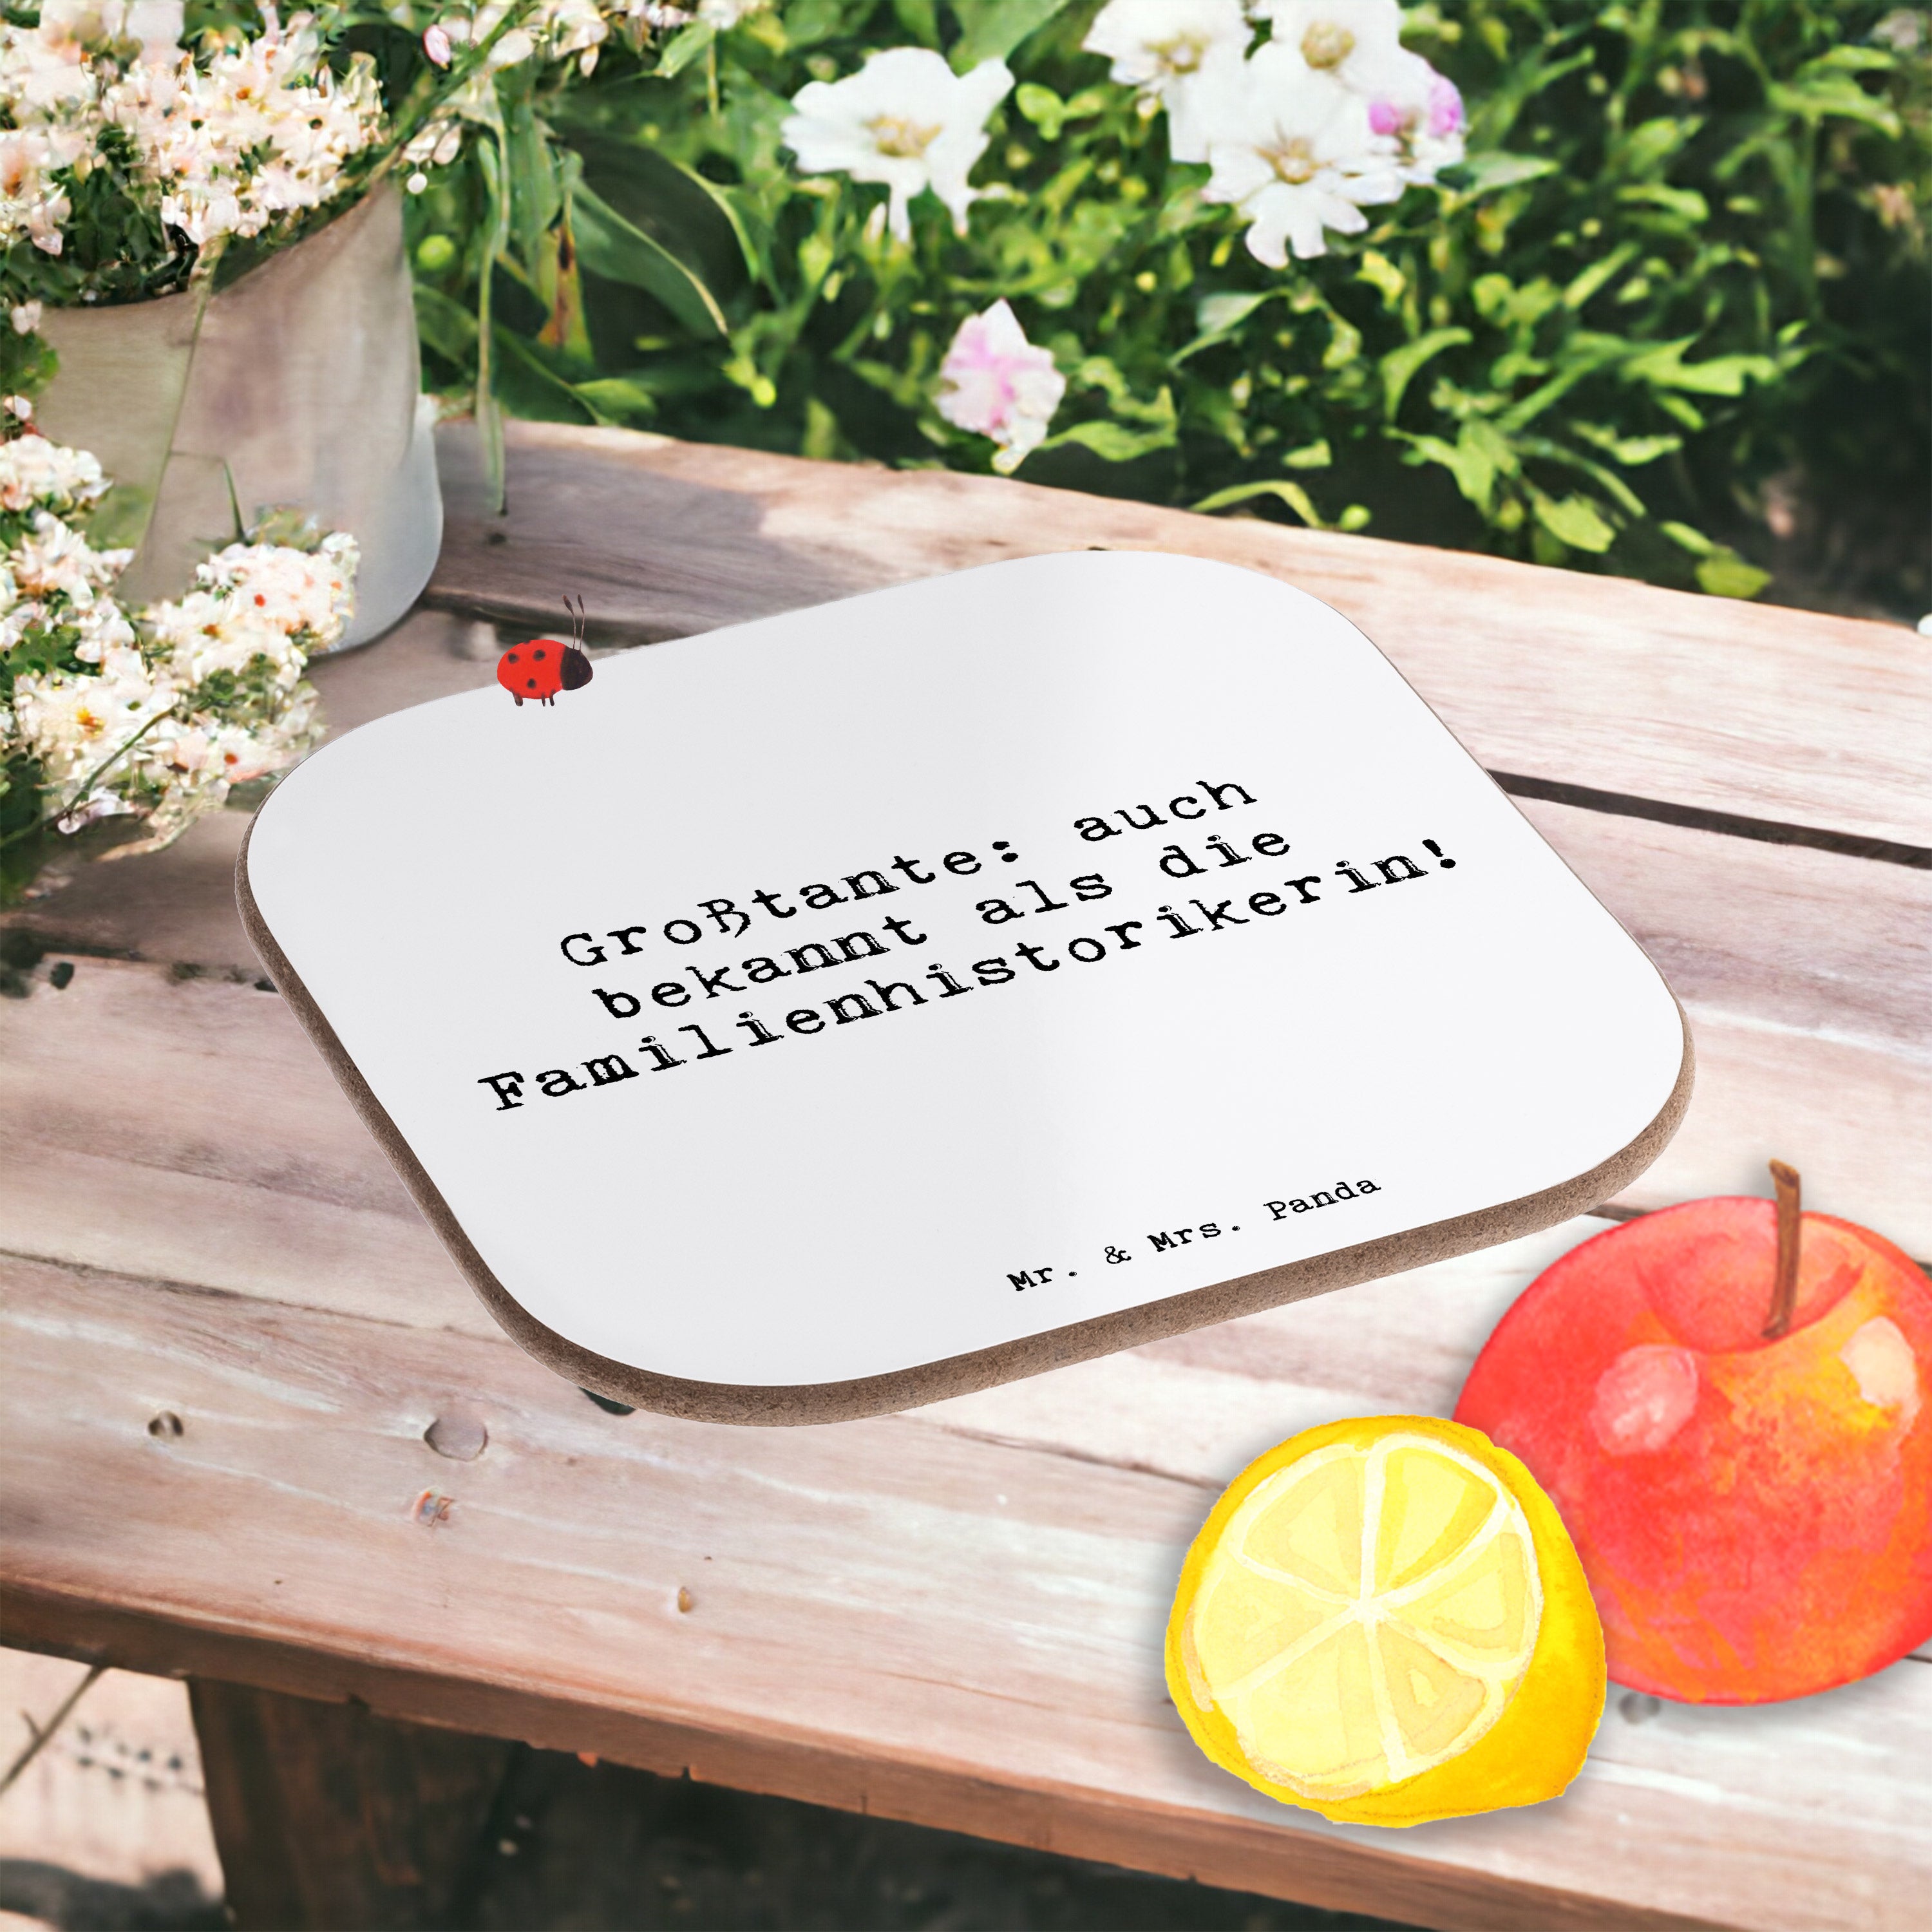 Großtante: auch
bekannt als die
Familienhistorikerin!
Mr. & Mrs. Panda